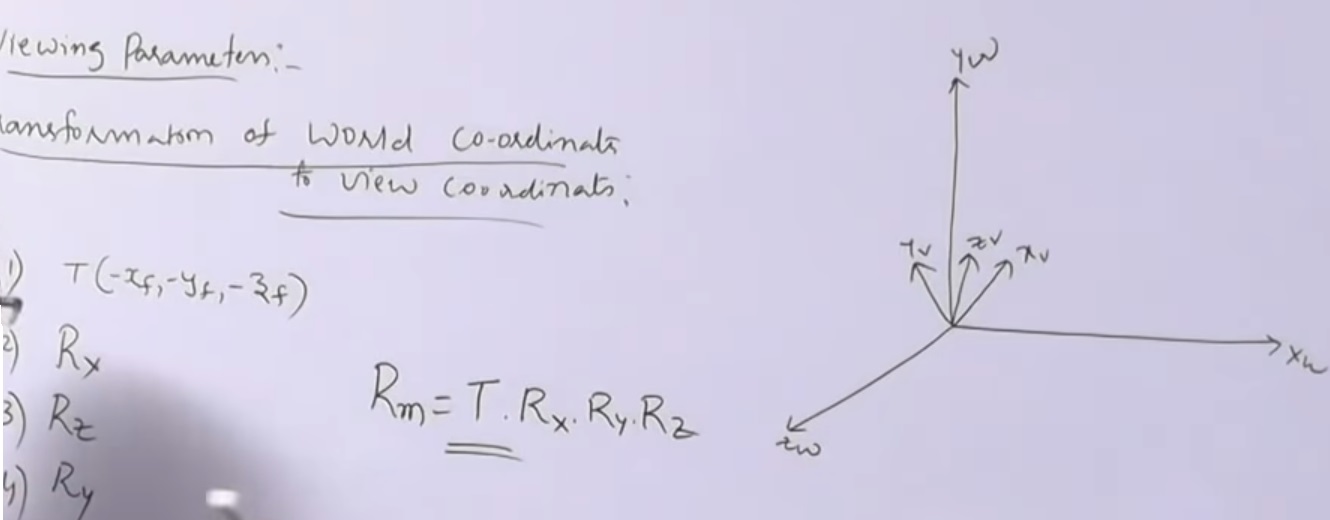 Viewing Parameters:-
ransformation of World Co-ordinate
to view coordinats:
1) T(-xf, -yf, -zf)
2) Rx
3) Rz
4) Ry
Rm = T. Rx. Ry. Rz
yw
yv zv xv
xw
zw